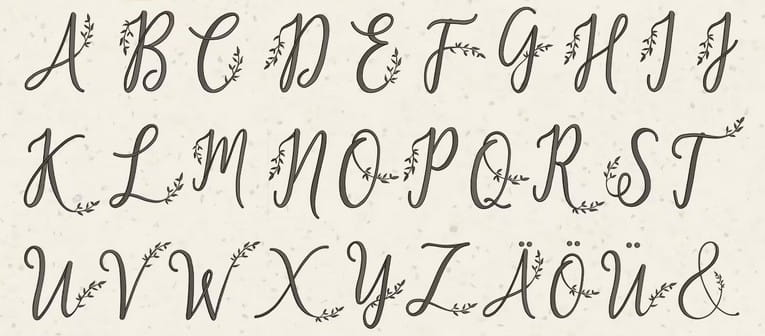 A B C D E F G H I J
K L M N O P Q R S T
U V W X Y Z Ä Ö Ü &